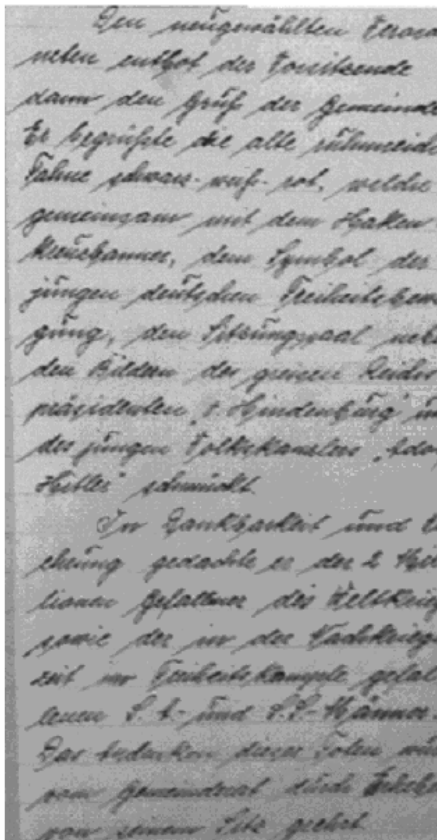 Den neugewählten Verord
neten entbot der Vorsitzende
dann den Gruß der Gemeinde
Er begrüßte die alte ruhmreiche
Fahne schwarz-weiß-rot, welche
gemeinsam mit dem Haken
kreuzbanner, dem Symbol der
jungen deutschen Freiheitsbewe
gung, den Sitzungssaal nebst
den Bildern des greisen Reichs
präsidenten "v. Hindenburg" un
des jungen Volkskanzlers "Adol
Hitler" schmückt.
In Dankbarkeit und
ehrung gedachte er der 2 Mil
lionen Gefallener des Weltkrieg
sowie der in der Nachkriegs
zeit im Freiheitskampfe gefal
lenen S.A.- und S.S.-Männer.
Das Andenken dieser Toten wur
vom Gemeinderat durch Erheben
von seinem Sitz geehrt.